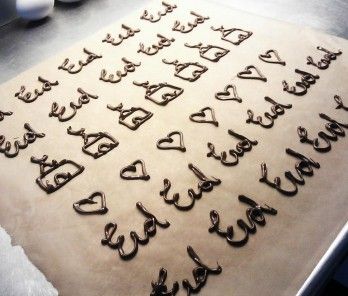 Eid Eid
Eid Eid Eid Eid
Eid Eid Eid Eid Eid
Eid Eid Eid Eid Eid Eid
Eid Eid Eid Eid Eid